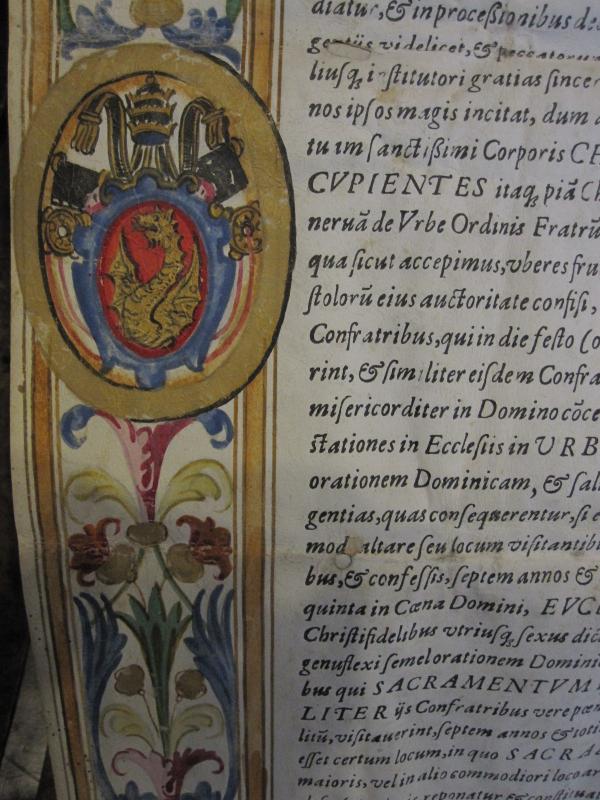 diatur, & in proceßionibus de
gentiis videlicet, & peccatorum
liusq; institutori gratias sincer
nos ipsos magis incitat, dum a
tu im sanctißimi Corporis CH
CVPIENTES itaq; piã Ch
neruã de Vrbe Ordinis Fratrũ
qua sicut accepimus, vberes fru
stolorũ eius auctoritate confisi,
Confratribus, qui in die festo (o
rint, & similiter eisdem Confra
misericorditer in Domino cõce
stationes in Ecclesiis in URB
orationem Dominicam, & sal
gentias, quas consequerentur, si e
mod altare seu locum visitantib
bus, & confessis, septem annos &
quinta in Cœna Domini, EVC
Christifidelibus vtriusq; sexus dic
genuflexi semel orationem Domini
bus qui SACRAMENTVM
LITER ijs Confratribus vere pœn
litũ, visitauerint, septem annos & toti
esset certum locum, in quo SACRA
maioris, vel in alio commodiori loco ar
reponatur & constituat